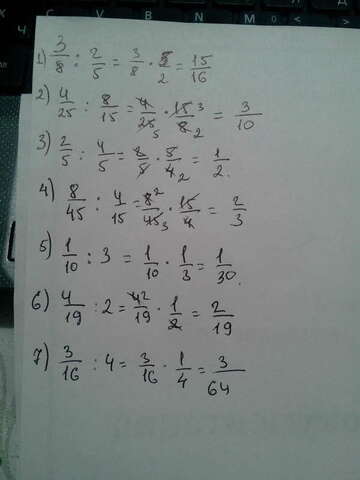 1) 3/8 : 2/5 = 3/8 · 5/2 = 15/16
2) 4/25 : 8/15 = 4/25 5 · 15 3/8 2 = 3/10
3) 2/5 : 4/5 = 2/5 · 5/4 2 = 1/2.
4) 8/45 : 4/15 = 8 2/45 3 · 15/4 = 2/3
5) 1/10 : 3 = 1/10 · 1/3 = 1/30.
6) 4/19 : 2 = 4 2/19 · 1/2 = 2/19
7) 3/16 : 4 = 3/16 · 1/4 = 3/64